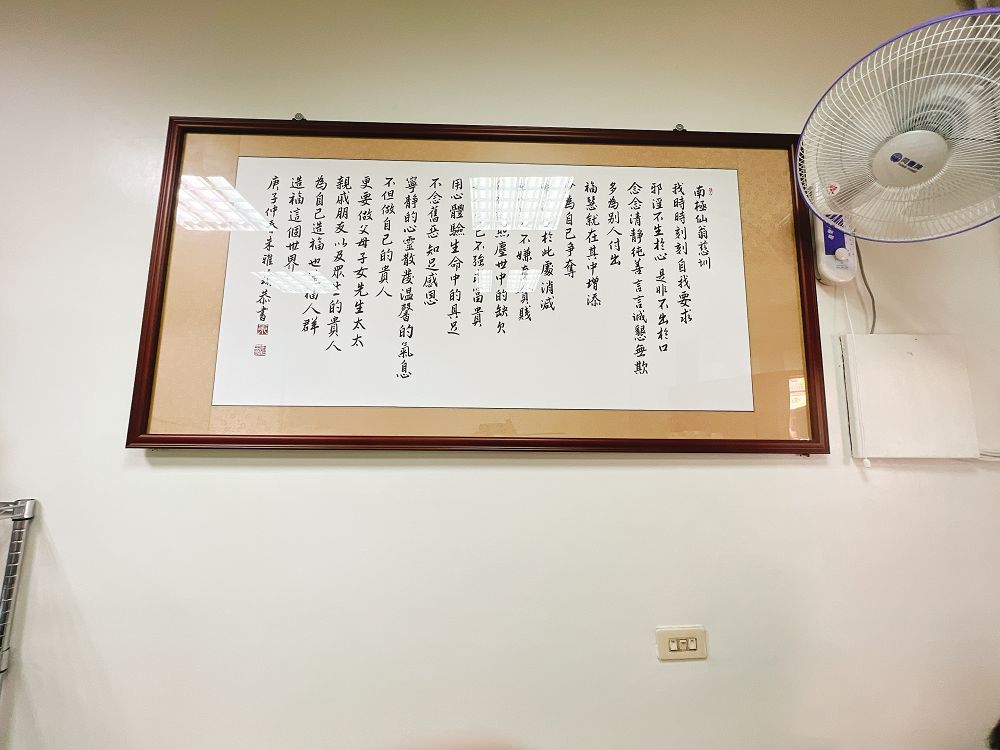 南極仙翁慈訓
我時時刻刻自我要求
邪淫不生於心 是非不出於口
念念清靜純善 言言誠懇無欺
多為別人付出
福慧就在其中增添
為自己爭奪
於此處消減
不嫌貧賤
塵世中的缺欠
己不強求富貴
用心體驗生命中的具足
不念舊惡知足感恩
寧靜的心靈散發溫馨的氣息
不但做自己的貴人
更要做父母子女先生太太
親戚朋友以及眾生的貴人
為自己造福也造福人群
造福這個世界
庚子仲天朱雅 恭書